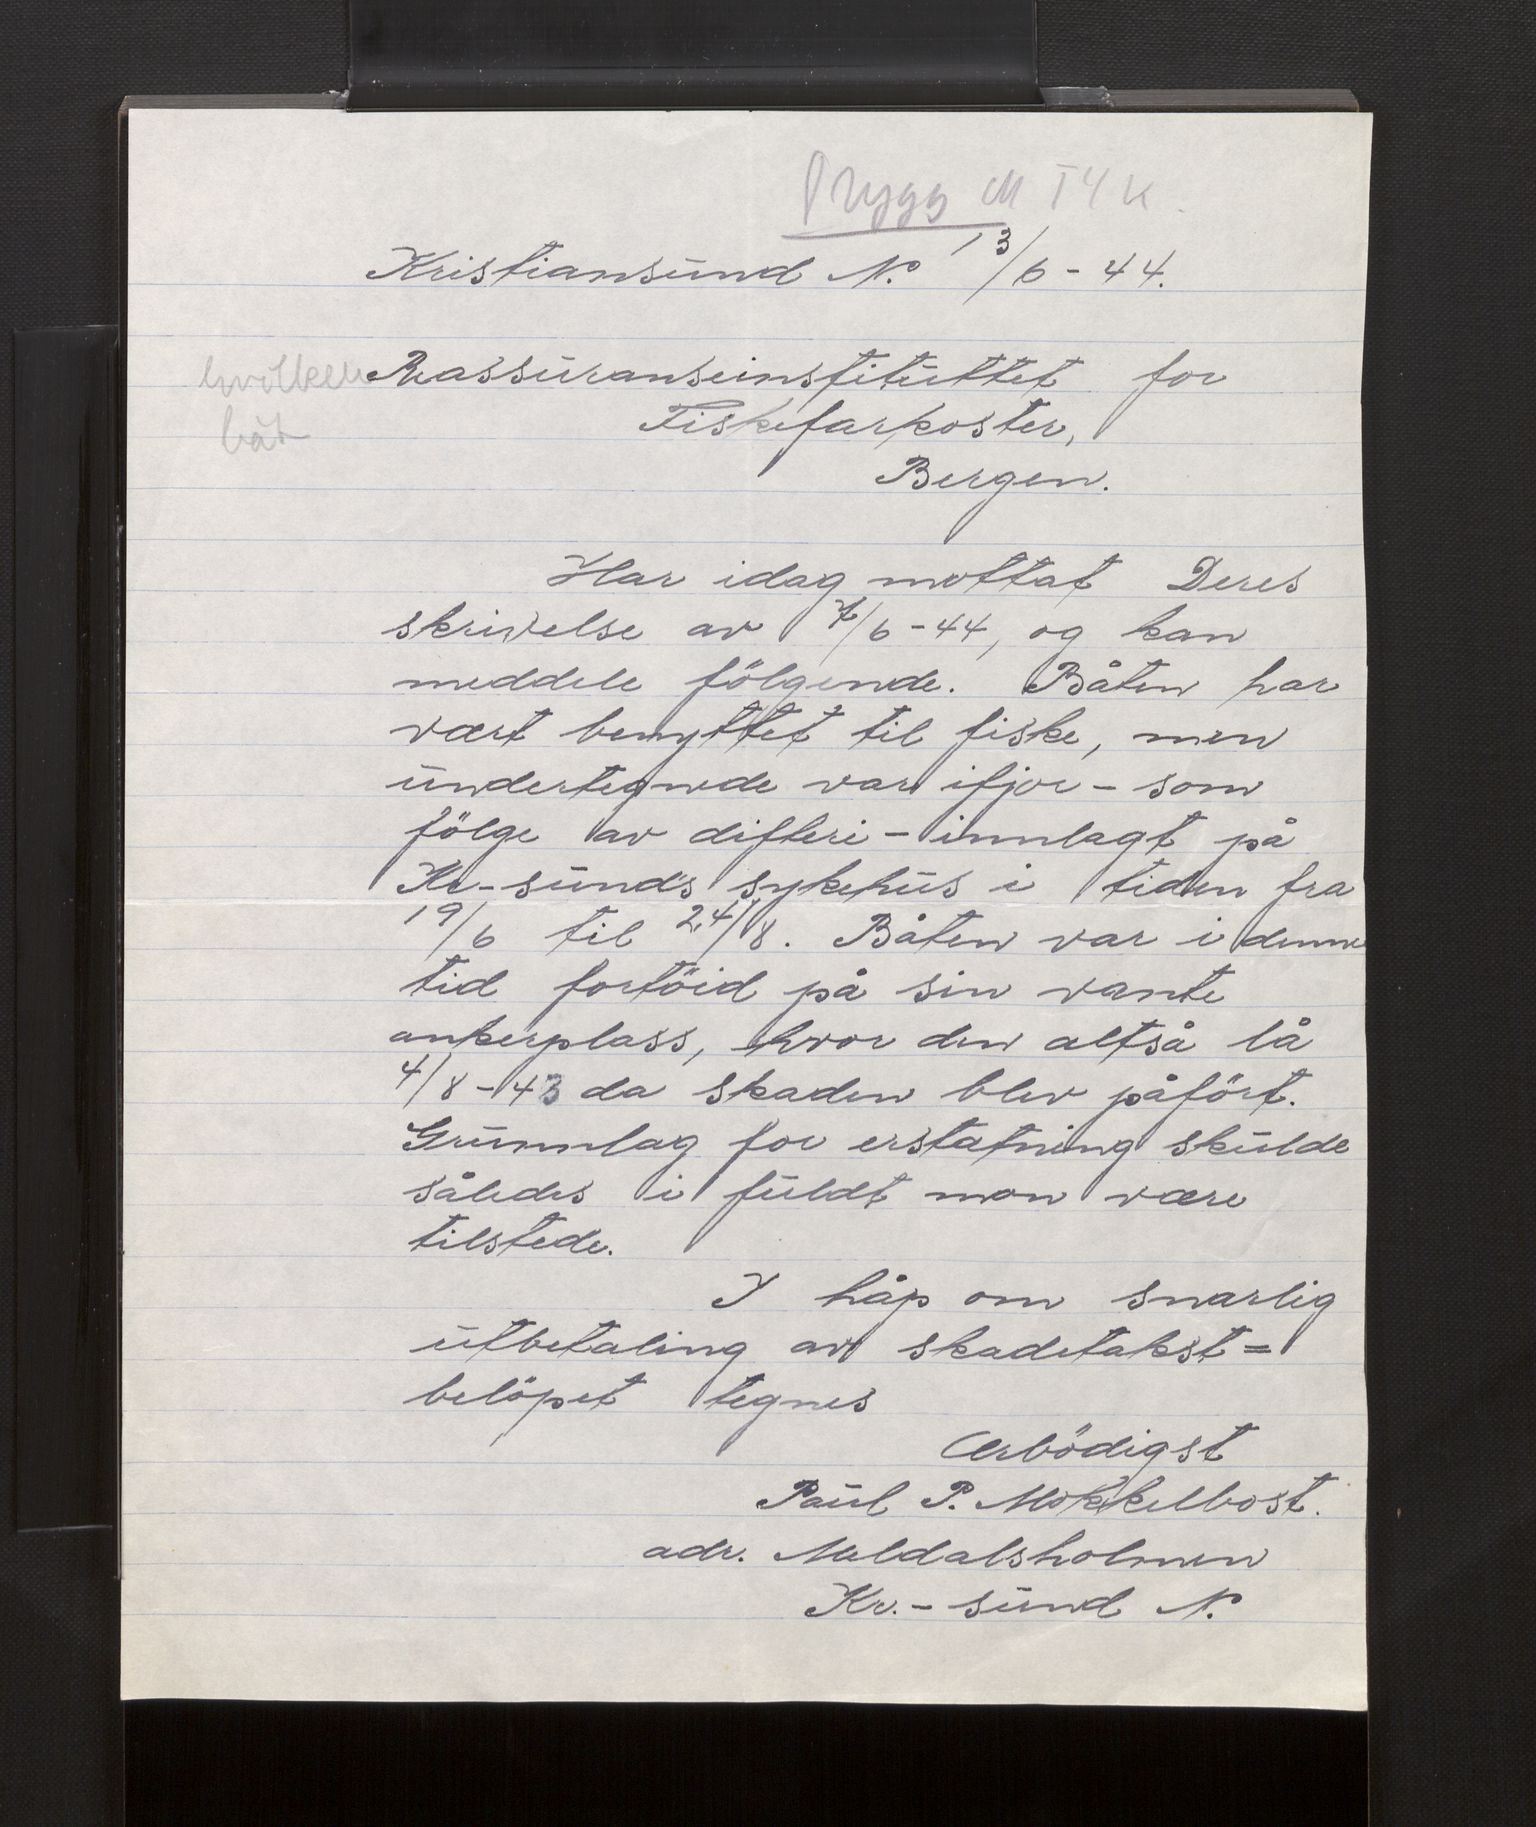 Trygg M T4K.
Kristiansund N. 13/6-44.
hvilken
båt
Reassuranseinstituttet for
Fiskefarkoster,
Bergen.
Har idag mottat Deres
skrivelse av 7/6-44, og kan
meddele fölgende. Båten har
vært benyttet til fiske, men
undertegnede var ifjor - som
fölge av difteri - innlagt på
Kr-sund's sykehus i tiden fra
19/6 til 24/8. Båten var i denne
tid fortöid på sin vante
ankerplass, hvor den altså lå
4/8-43 da skaden blev påfört.
Grunnlag for erstatning skulde
således i fuldt mon være
tilstede.
I håp om snarlig
utbetaling av skadetakst=
belöpet tegnes
Ærbödigst
Paul P. Mokkelbost.
adr. Meldalsholmen
Kr.-sund N.